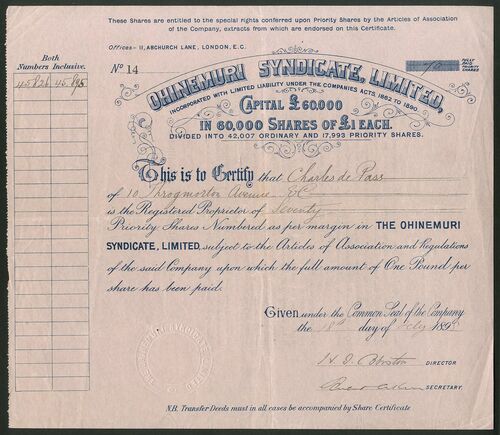 These Shares are entitled to the special rights conferred upon Priority Shares by the Articles of Association
of the Company, extracts from which are endorsed on this Certificate.
Offices - 11, ABCHURCH LANE, LONDON, E.C.
Both
Numbers Inclusive.
45826 45895
No 14
70
FULLY PAID PRIORITY SHARES
OHINEMURI SYNDICATE, LIMITED,
INCORPORATED WITH LIMITED LIABILITY UNDER THE COMPANIES ACTS, 1862 TO 1890
CAPITAL £60,000
IN 60,000 SHARES OF £1 EACH.
DIVIDED INTO 42,007 ORDINARY AND 17,993 PRIORITY SHARES.
This is to Certify that Charles de Pass
of 10 Throgmorton Avenue EC
is the Registered Proprietor of Seventy
Priority Shares Numbered as per margin in THE OHINEMURI
SYNDICATE, LIMITED, subject to the Articles of Association and Regulations
of the said Company upon which the full amount of One Pound per
share has been paid.
Given under the Common Seal of the Company
the 18th day of 189
DIRECTOR
SECRETARY.
N.B. Transfer Deeds must in all cases be accompanied by Share Certificate